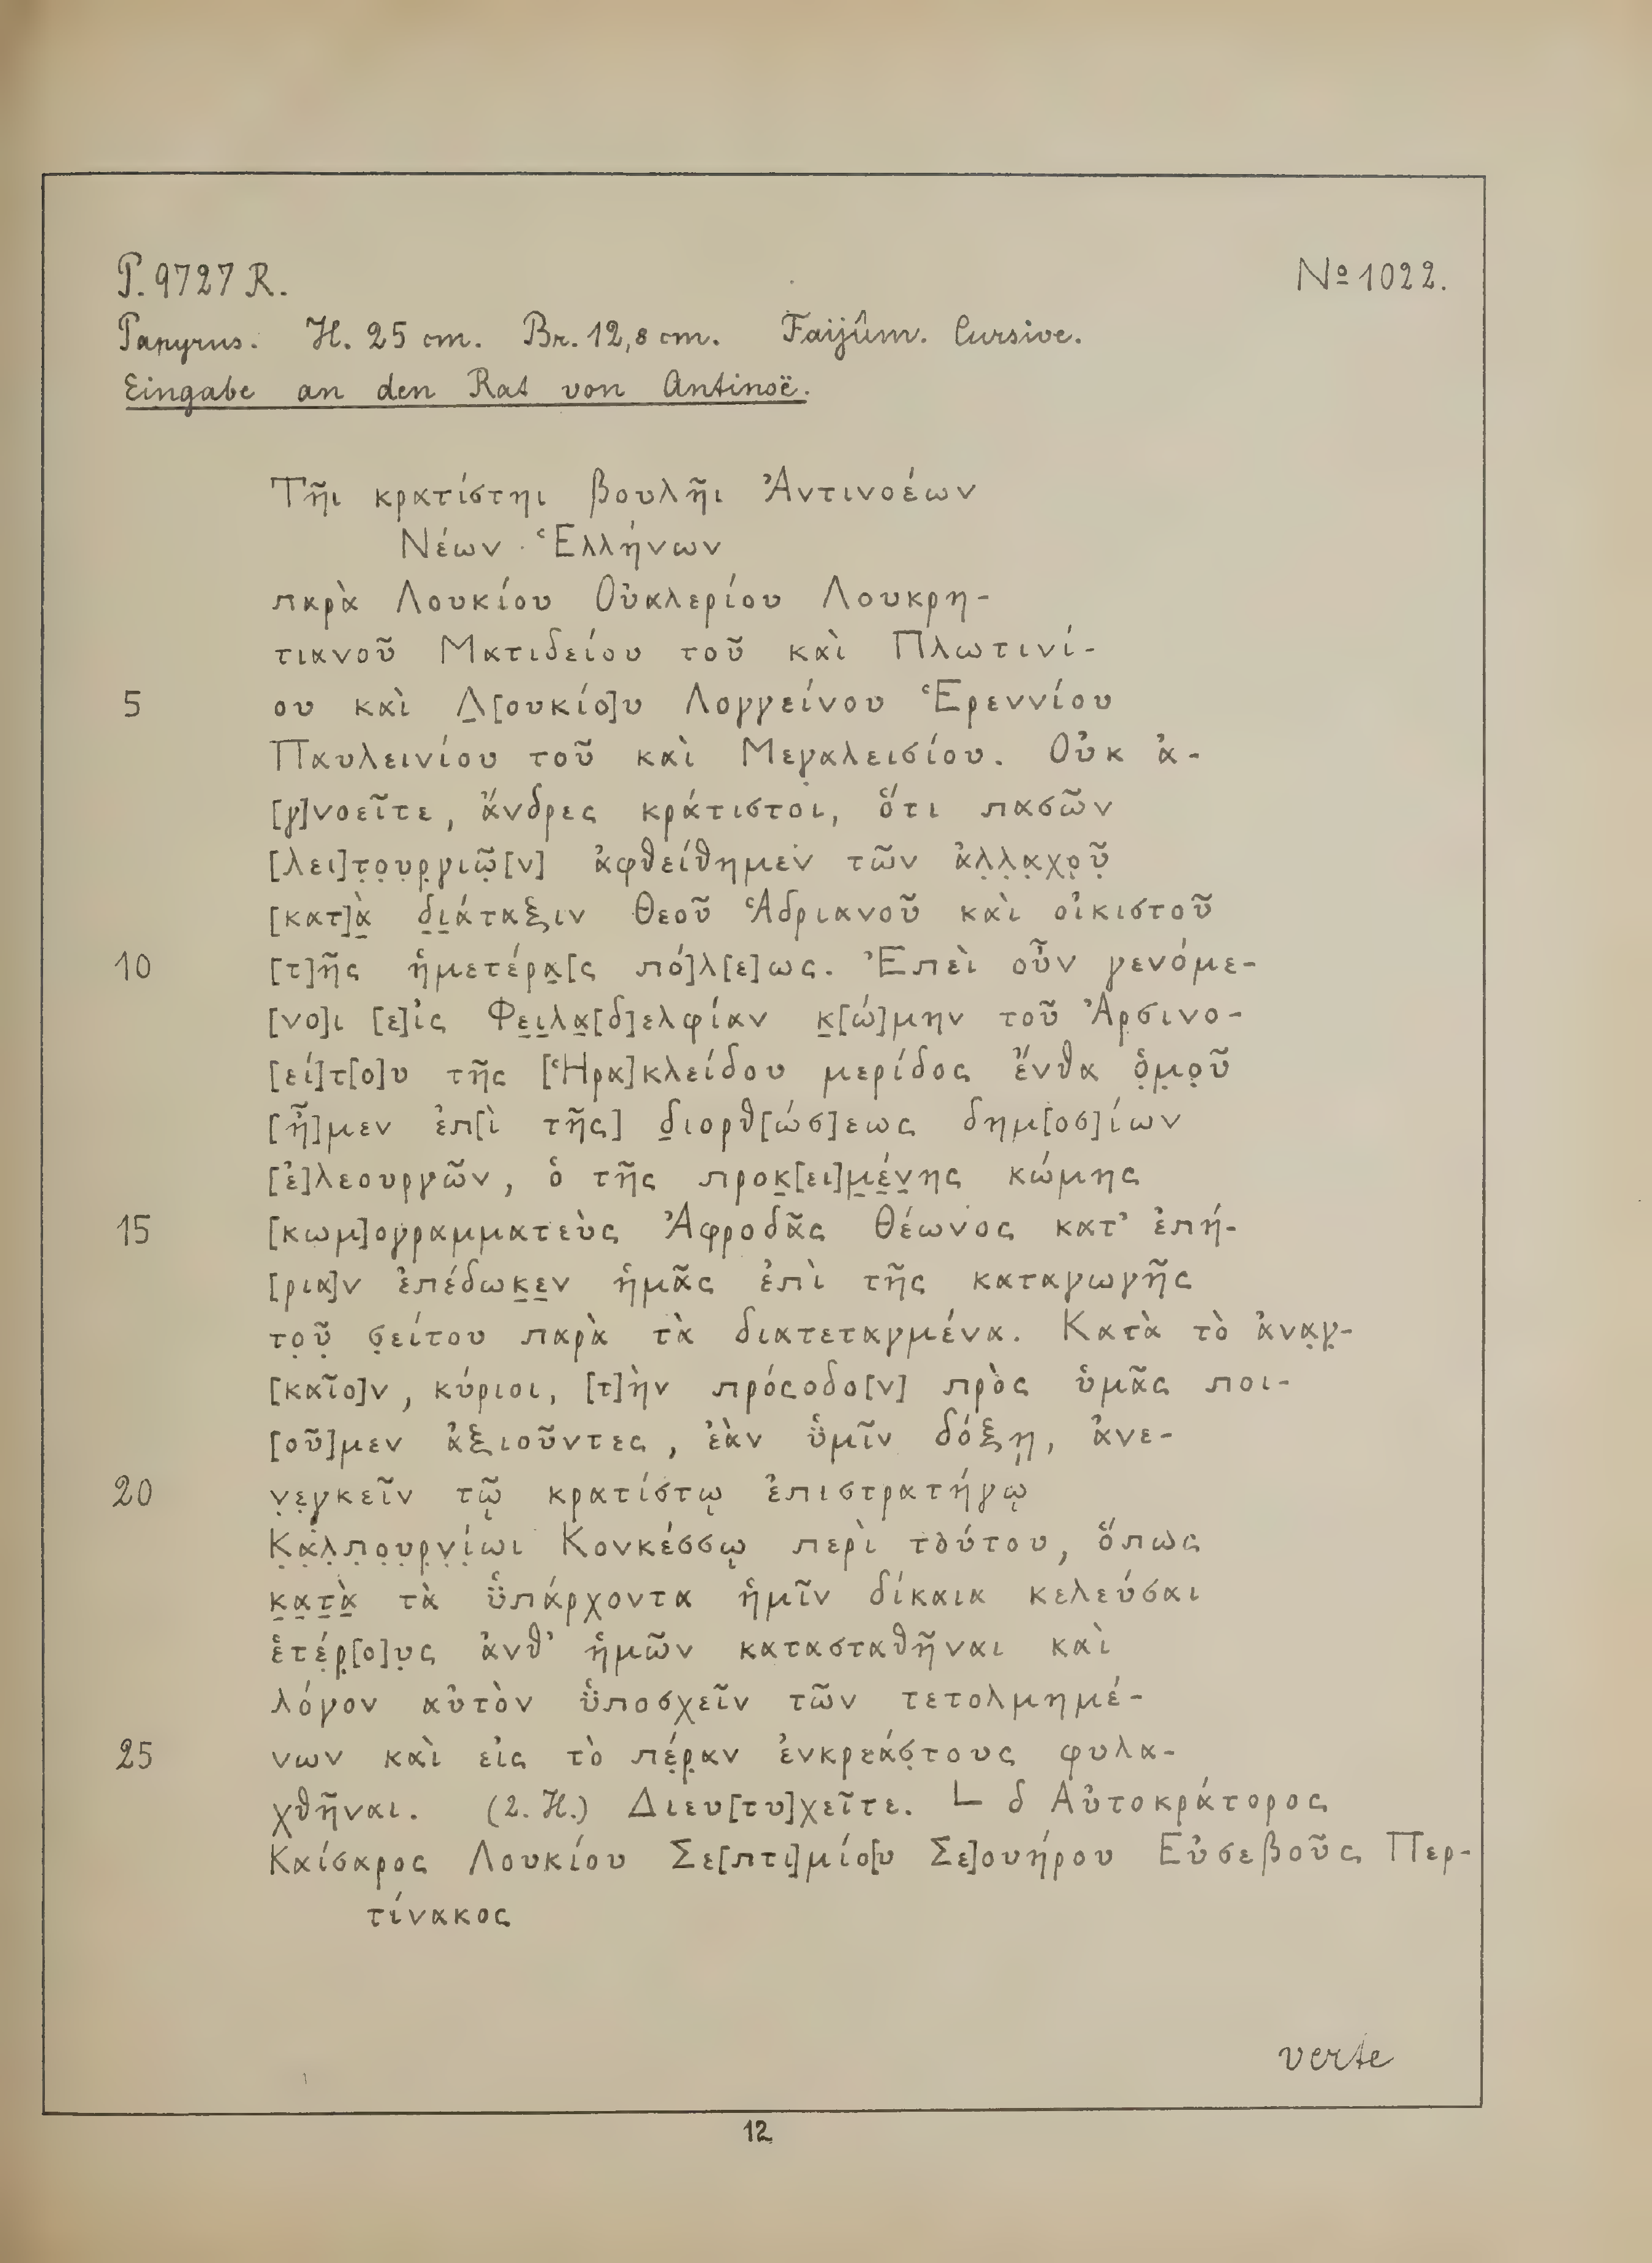 P. 9727 R. № 1022.
Papyrus. H. 25 cm. Br. 12,8 cm. Faijûm. Cursive.
Eingabe an den Rat von Antinoë.
Τῆι κρατίστηι βουλῆι Ἀντινοέων
Νέων Ἑλλήνων
παρὰ Λουκίου Οὐαλερίου Λουκρη-
τιανοῦ Ματιδείου τοῦ καὶ Πλωτινί-
5 ου καὶ Λ̣[ουκίο]υ Λογγείνου Ἑρεννίου
Παυλεινίου τοῦ καὶ Μεγαλεισίου. Οὐκ ἀ-
[γ]νοεῖτε, ἄνδρες κράτιστοι, ὅτι πασῶν
[λει]τ̣ο̣υ̣ρ̣γιῶ̣[ν] ἀφθείθημεν τῶν ἀλ̣λ̣α̣χο̣ῦ̣
[κατ]ὰ̣ δ̣ι̣άταξιν Θεοῦ Ἁδριανοῦ καὶ οἰκιστοῦ
10 [τ]ῆς ἡμετέρα̣[ς πό]λ[ε]ως. Ἐπεὶ οὖν γενόμε-
[νο]ι [ε]ἰς Φε̣ι̣λα̣[δ]ελφίαν κ̣[ώ]μην τοῦ Ἀρσινο-
[εί]τ[ο]υ τῆς [Ἡρα]κλείδου μερίδος ἔνθα ὁ̣μ̣ο̣ῦ
[ἦ]μεν ἐπ[ὶ τῆς] δ̣ιορθ[ώσ]εως δημ[οσ]ίων
[ἐ]λεουργῶν, ὁ τῆς προκ̣[ει]μ̣έ̣ν̣ης κώμης
15 [κωμ]ογραμματεὺς Ἀφροδᾶς Θέωνος κατ’ ἐπή-
[ρια]ν ἐπέδωκ̣ε̣ν ἡμᾶς ἐπὶ τῆς καταγωγῆς
το̣ῦ̣ σ̣είτου παρὰ τὰ διατεταγμένα. Κατὰ τὸ ἀνα̣γ̣-
[καῖο]ν, κύριοι, [τ]ὴν πρόσοδο[ν] πρὸς ὑμᾶς ποι-
[οῦ]μεν ἀξιοῦντες, ἐὰν ὑ̈μῖν δόξῃ, ἀνε-
20 ν̣ε̣γκεῖν τῷ κρατίστῳ ἐπιστρατήγῳ
Κ̣α̣λ̣π̣ο̣υ̣ρ̣ν̣ί̣ωι Κονκέσσῳ περὶ τούτου, ὅπως
κ̣α̣τ̣ὰ̣ τὰ ὑ̈πάρχοντα ἡμῖν δίκαια κελεύσαι
ἑτέ̣ρ̣[ο]υ̣ς ἀνθ’ ἡμῶν κατασταθῆναι καὶ
λόγον αὐτὸν ὑ̈ποσχεῖν τῶν τετολμημέ-
25 νων καὶ εἰς τὸ πέ̣ρ̣αν ἐνκρεάσ̣τους φυλα-
χθῆναι. (2. H.) Διευ[τυ]χεῖτε. ∟ δ Αὐτοκράτορος
Καίσαρος Λουκίου Σε[πτι]μίο[υ Σε]ουήρου Εὐσεβοῦς Περ-
τίνακος
verte
12